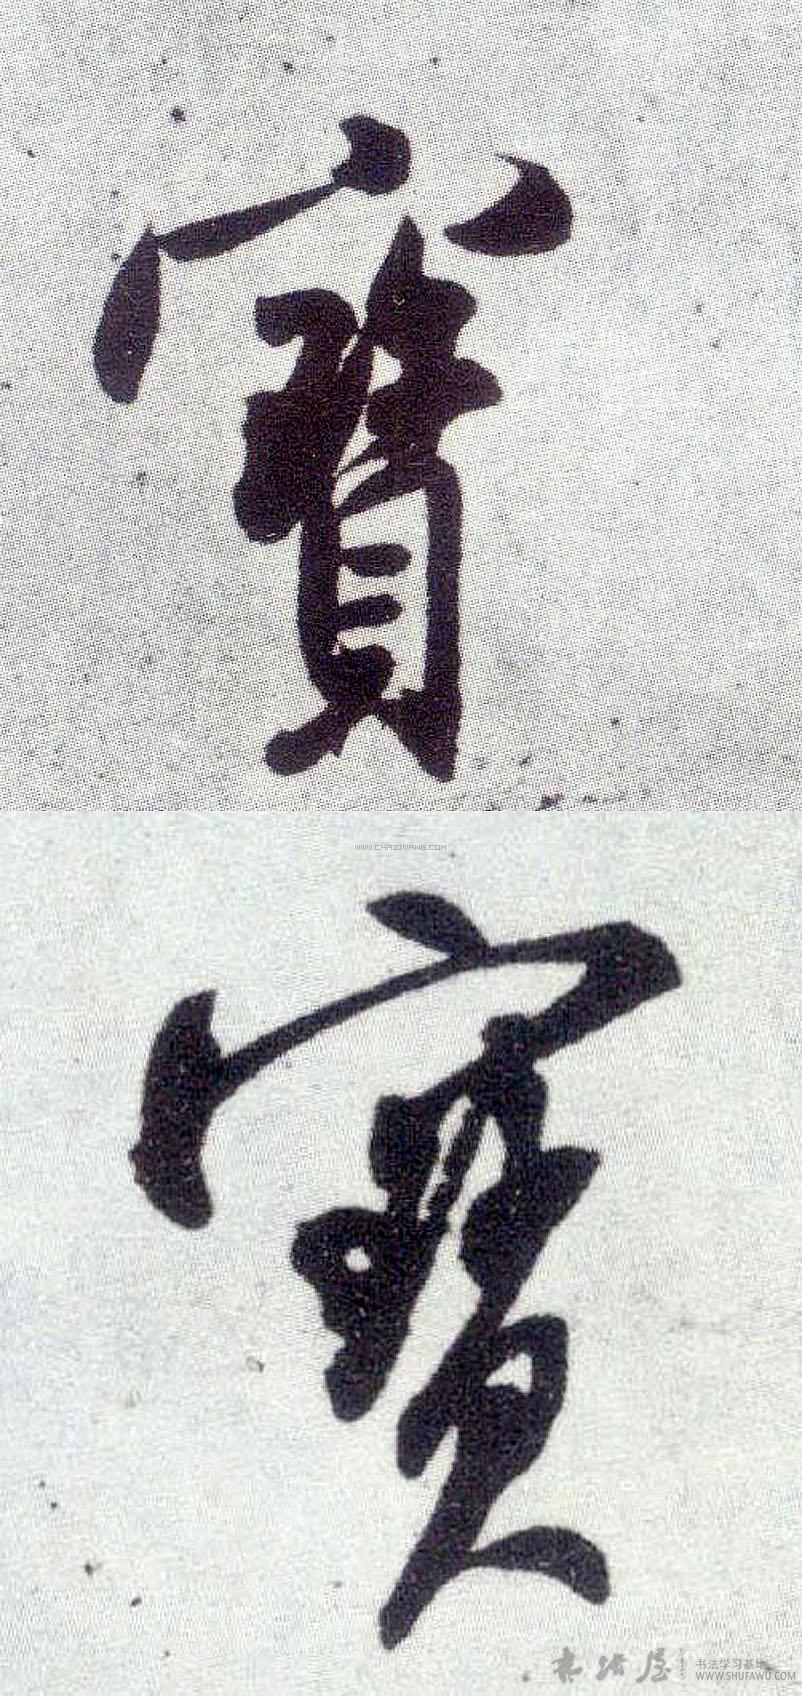 寶
WWW.CHAZIWANG.COM
寶
书法屋 书法学习基地
WWW.SHUFAWU.COM